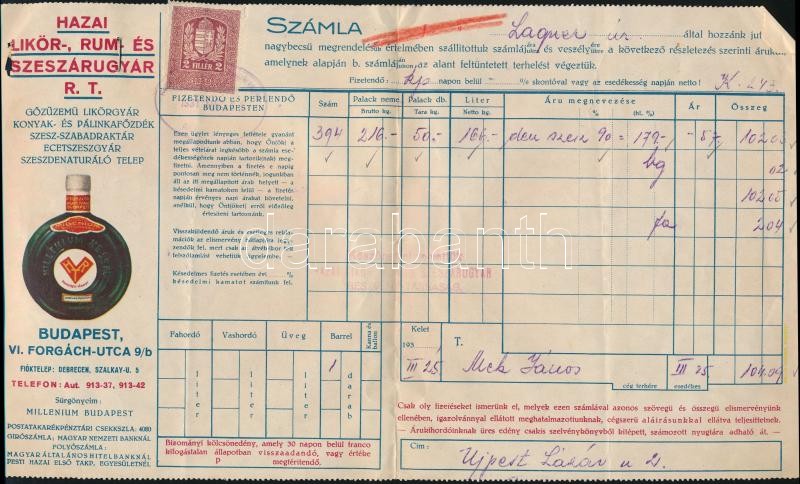 HAZAI
LIKÖR-, RUM- ÉS
SZESZÁRUGYÁR
R. T.
GŐZÜZEMÜ LIKÖRGYÁR
KONYAK- ÉS PÁLINKAFŐZDÉK
SZESZ-SZABADRAKTÁR
ECETSZESZGYÁR
SZESZDENATURÁLÓ TELEP
MILLENIUM
BUDAPEST,
VI. FORGÁCH-UTCA 9/b
FIÓKTELEP: DEBRECEN, SZALKAY-U. 5
TELEFON: Aut. 913-37, 913-42
Sürgönycim:
MILLENIUM BUDAPEST
POSTATAKARÉKPÉNZTÁRI CSEKKSZLA: 4080
GIRÓSZÁMLA: MAGYAR NEMZETI BANKNÁL
FOLYÓSZÁMLA:
MAGYAR ÁLTALÁNOS HITELBANKNÁL
PESTI HAZAI ELSŐ TAKP. EGYESÜLETNÉL
2 FILLÉR 2
SZÁMLA
Lagner úr által hozzánk jut
nagybecsü megrendelések értelmében szállítottuk számlájára és veszélyére a következő részletezés szerinti árukat
amelynek alapján b. számláján az alant feltüntetett terhelést végeztük.
Fizetendő: napon belül — % skontóval vagy az esedékesség napján netto!
FIZETENDŐ ÉS PERLENDŐ
BUDAPESTEN
Szám
Palack neme
Brutto kg.
Palack db.
Tara kg.
Liter
Netto kg.
Áru megnevezése
% (hl. %)
Ár
Összeg
394 216.- 50.- 166.- den szesz 90 = 179.- -57
10205
204
Ezen ügylet lényeges feltétele gyanánt
megállapodtunk abban, hogy Önt(ök)
a teljes vételárat legkésőbb a számla ese-
dékességének napján tartozik(nak) megfi-
zetni. Amennyiben a fizetés e napig
pontosan meg nem történnék, jogunkban
áll az itt megállapított árak helyett — a
késedelmi kamatokon felül — a fizetés
napján érvényes napi árakat követelni,
anélkül, hogy Önt(öket) erről előzőleg
értesíteni tartoznánk.
Visszaküldendő áruk és esetleges reklamációk
Késedelmes fizetés esetében évi %
késedelmi kamatot számítunk fel.
Fahordó
Vashordó
Üveg
Barrel
Kanna és ballon
liter
liter
liter
1
darab
Kelet
193
III 25
T.
Meck János
cég terhére
III 25
esedékes
10409
Bizományi kölcsönedény, amely 30 napon belül franco
kifogástalan állapotban visszaadandó, vagy értéke
P megtérítendő.
Csak oly fizetéseket ismerünk el, melyek ezen számlával azonos szövegü és összegü elismervényünk
ellenében, igazolvánnyal ellátott meghatalmazottunknak, cégszerü aláírásunkkal ellátva teljesíttetnek.
— Árukihordóinknak üres edény csakis szelvénykönyvből kitépett, számozott nyugtára adható át. —
Cim:
Ujpest Lázár u 2.
darabanth